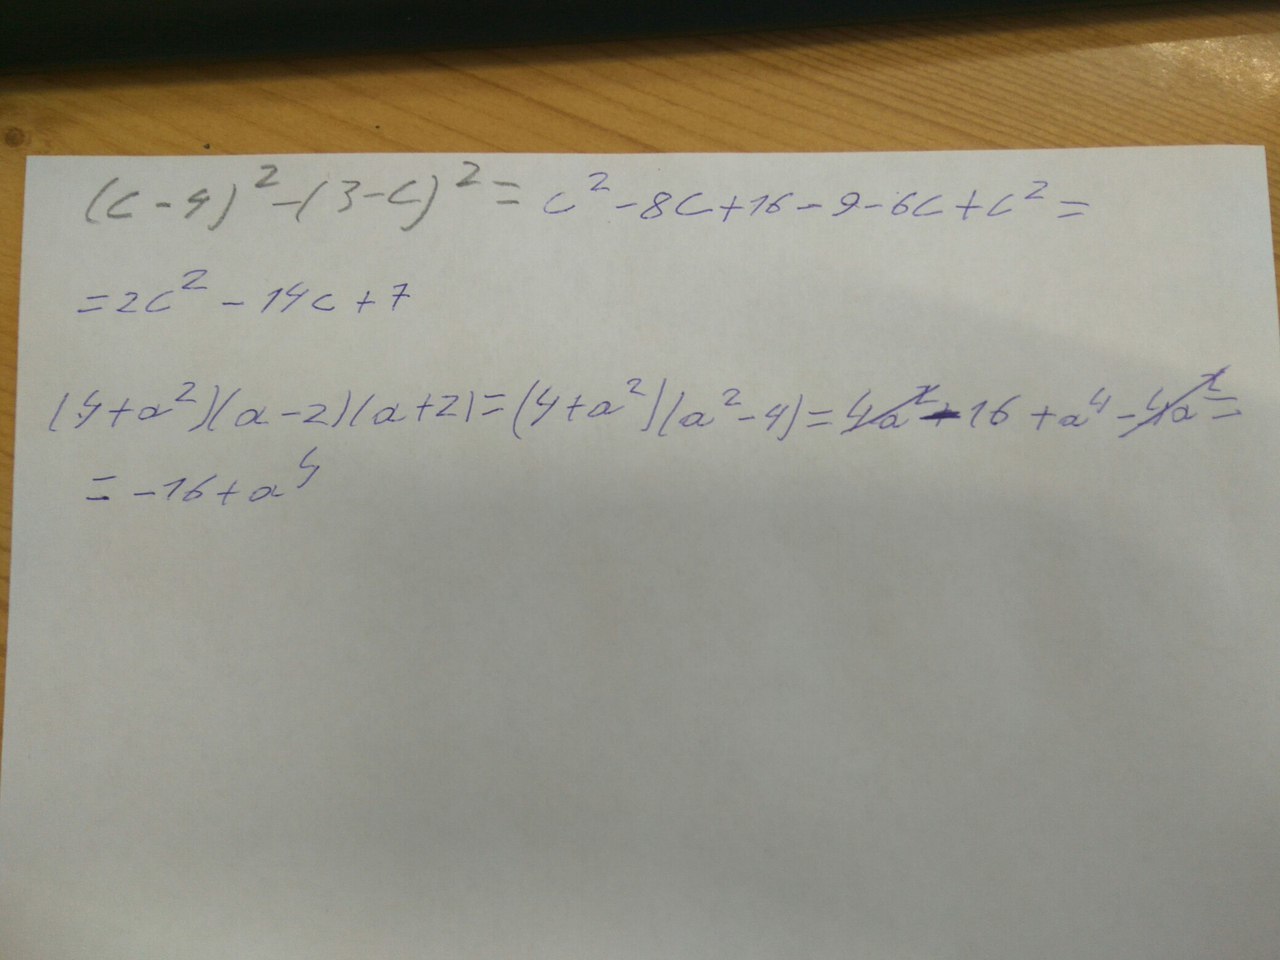 (c-4)²-(3-c)²= c²-8c+16-9-6c+c²=
=2c²-14c+7
(4+a²)(a-2)(a+2)=(4+a²)(a²-4)=4a²-16+a⁴-4a²=
=-16+a⁴